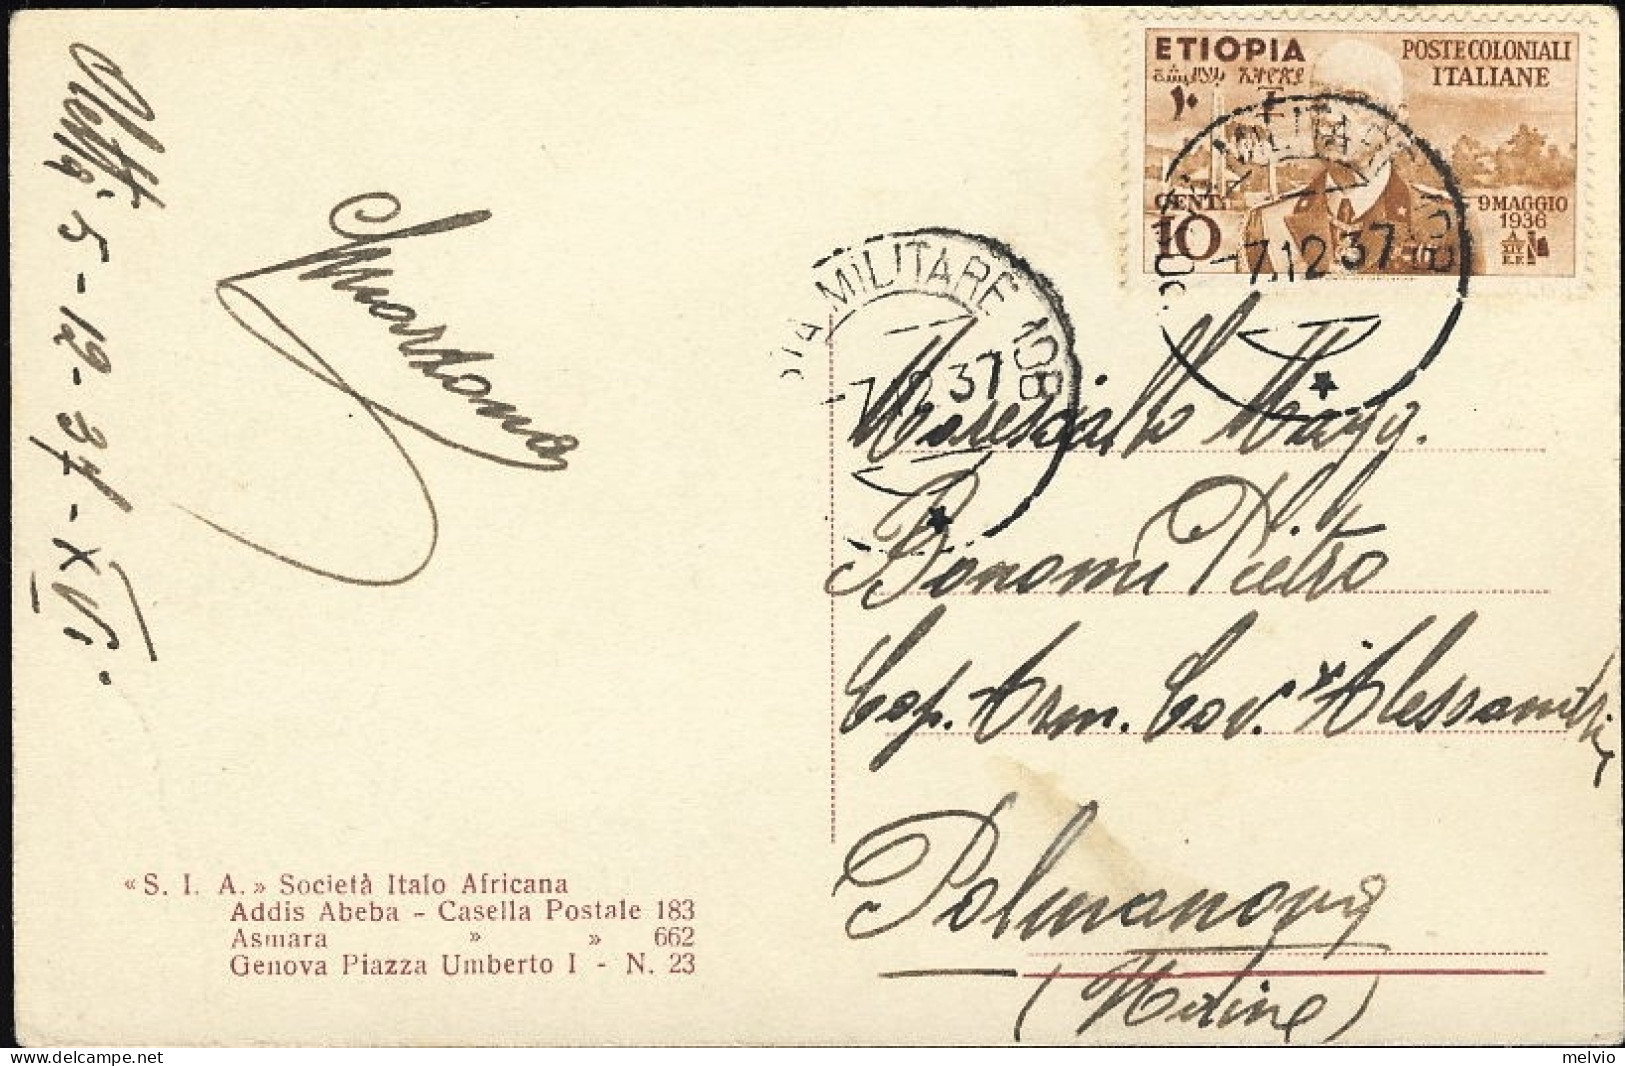 5-12-37-XVI°
ETIOPIA
POSTE COLONIALI
ITALIANE
CENT.
10
9 MAGGIO
1936
XIV
E.F.
POSTA MILITARE 108
-7.12 37
TA MILITARE 108
-7.12 37
Maresciallo Magg.
Bonomi Pietro
Cap. Arm. Cav. "Alessandria"
Palmanova
(Udine)
« S. I. A. » Società Italo Africana
Addis Abeba - Casella Postale 183
Asmara » » 662
Genova Piazza Umberto I - N. 23
melvio